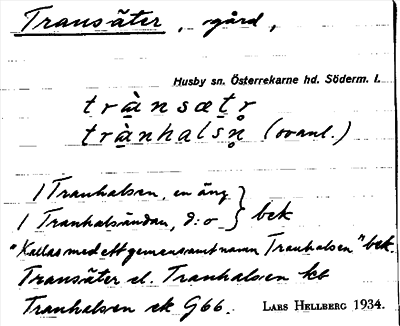 Transäter, gård,
Husby sn. Österrekarne hd. Söderm. l.
trànsætr̥
trànhalsn̥ (ovanl.)
/ Tranhalsen, en äng
/ Tranhalsändan, d:o } bek
"Kallas med ett gemensamt namn Tranhalsen" bek.
Transäter el. Tranhalsen kb
Tranhalsen ek G66. LARS HELLBERG 1934.